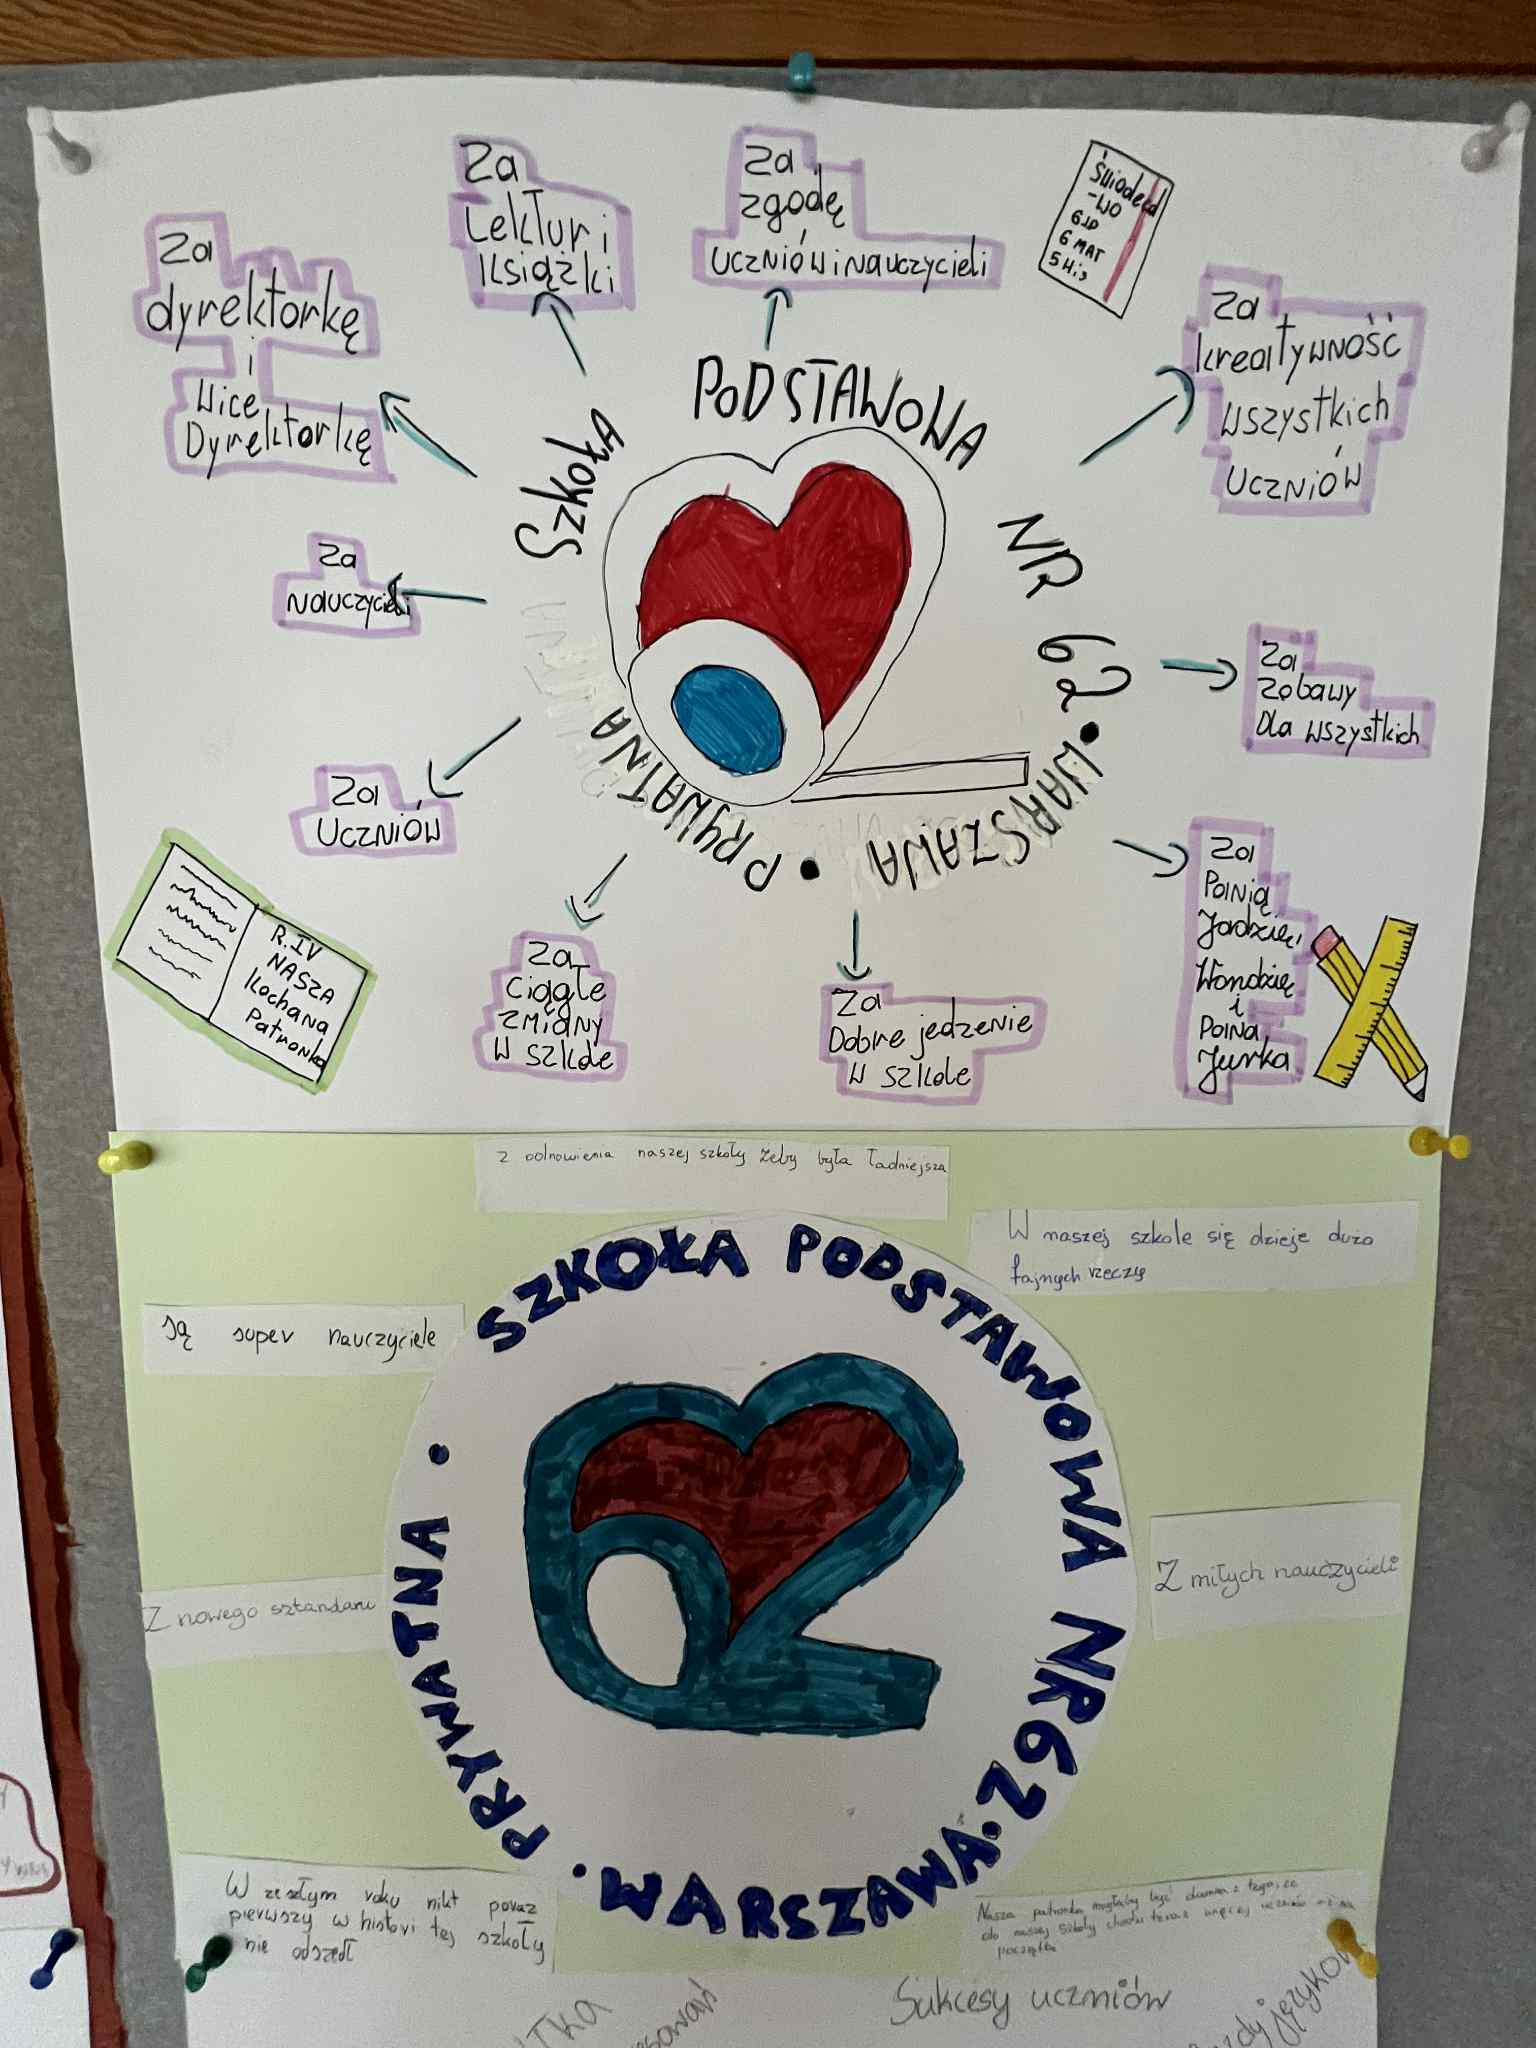 Za
Lektur i
Książki
Za
zgodę
uczniów i nauczycieli
-WO
6 MAT
5 His
Za
dyrektorkę
i
Wice
Dyrektorkę
Za
kreatywność
wszystkich
uczniów
SZKOŁA PODSTAWOWA NR 62 • WARSZAWA • PRYWATNA
Za
nauczycieli
Za
zabawy
Dla wszystkich
Za
Uczniów
Za
Panią
Jadzię
Wandzię
i
Pana
Jurka
R.IV
NASZA
Kochana
Patronka
Za
ciągłe
zmiany
w szkole
Za
Dobre jedzenie
w szkole
z odnowienia naszej szkoły żeby była ładniejsza
W naszej szkole się dzieje dużo
fajnych rzeczy
są super nauczyciele
SZKOŁA PODSTAWOWA NR 62 • WARSZAWA • PRYWATNA •
62
Z nowego sztandaru
Z miłych nauczycieli
W zeszłym roku nikt poraz
pierwszy w histori tej szkoły
nie odszedł
Nasza patronka mogłaby być dumna z tego, że
do naszej szkoły chodzi teraz więcej uczniów niż na
początku
Sukcesy uczniów